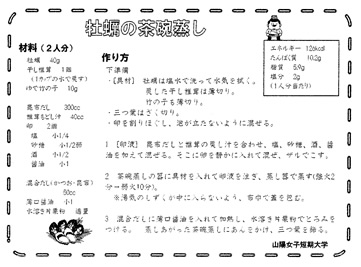 牡蠣の茶碗蒸し
材料（２人分）
牡蠣 40g
干し椎茸 1個
（1カップの水で戻す）
ゆで竹の子 10g
昆布だし 300cc
椎茸もどし汁 40cc
卵 2個
塩 小1/4
砂糖 小1/2弱
酒 小1/2
醤油 小1/2
混合だし（かつお・昆布）
50cc
薄口醤油 小1/2
水溶き片栗粉 適量
作り方
下準備
・［具材］ 牡蠣は塩水で洗って水気を拭く。
戻した干し椎茸は薄切り。
竹の子も薄切り。
・三つ葉はざく切り。
・卵を割りほぐし、泡が立たないように混ぜる。
1 ［卵液］ 昆布だしと椎茸の戻し汁を合わせ、塩、砂糖、酒、醤
油を加えて混ぜる。そこに卵を静かに入れて混ぜ、ザルでこす。
2 茶碗蒸しの器に具材を入れて卵液を注ぎ、蒸し器で蒸す（強火2
分→弱火10分）。
※湯気のしずくが中に入らないよう、布巾で蓋を包む。
3 混合だしに薄口醤油を入れて加熱し、水溶き片栗粉でとろみを
つける。 蒸しあがった茶碗蒸しにあんをかけ、三つ葉を飾る。
エネルギー 126kcal
たんぱく質 10.2g
糖質 5.9g
塩分 2g
（１人分当たり）
山陽女子短期大学